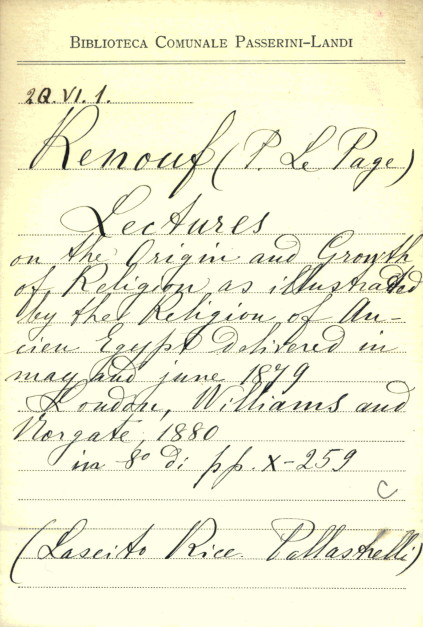 BIBLIOTECA COMUNALE PASSERINI-LANDI
2Q.VI.1.
Renouf (P. Le Page)
Lectures
on the Origin and Growth
of Religion as illustrated
by the Religion of An-
cien Egypt delivered in
may and june 1879
London, Williams and
Norgate, 1880
in 8º di pp. X-259
C
(Lascito Rice Pallastrelli)